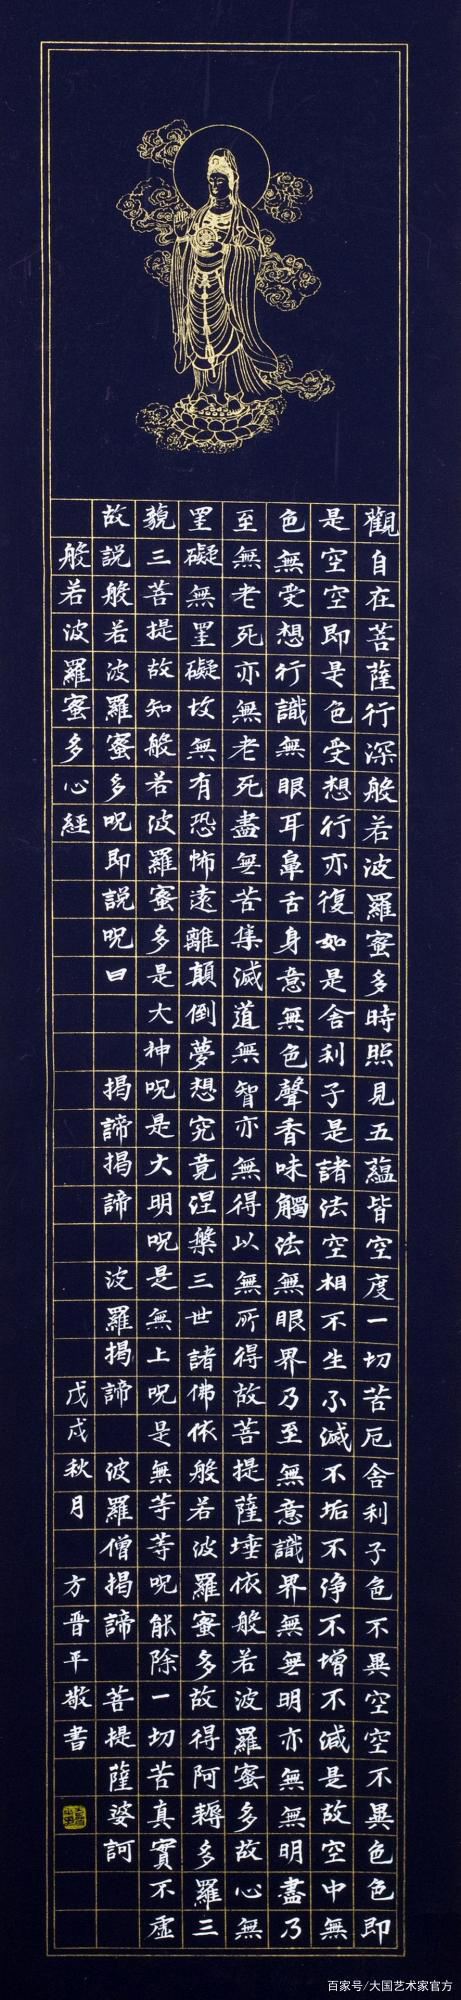 觀自在菩薩行深般若波羅蜜多時照見五蘊皆空度一切苦厄舍利子色不異空空不異色色即
是空空即是色受想行亦復如是舍利子是諸法空相不生不滅不垢不淨不增不減是故空中無
色無受想行識無眼耳鼻舌身意無色聲香味觸法無眼界乃至無意識界無無明亦無無明盡乃
至無老死亦無老死盡無苦集滅道無智亦無得以無所得故菩提薩埵依般若波羅蜜多故心無
罣礙無罣礙故無有恐怖遠離顛倒夢想究竟涅槃三世諸佛依般若波羅蜜多故得阿耨多羅三
藐三菩提故知般若波羅蜜多是大神呪是大明呪是無上呪是無等等呪能除一切苦真實不虛
故說般若波羅蜜多呪即說呪曰 揭諦揭諦 波羅揭諦 波羅僧揭諦 菩提薩婆訶
般若波羅蜜多心經 戊戌秋月 方晋平敬書
百家号/大国艺术家官方